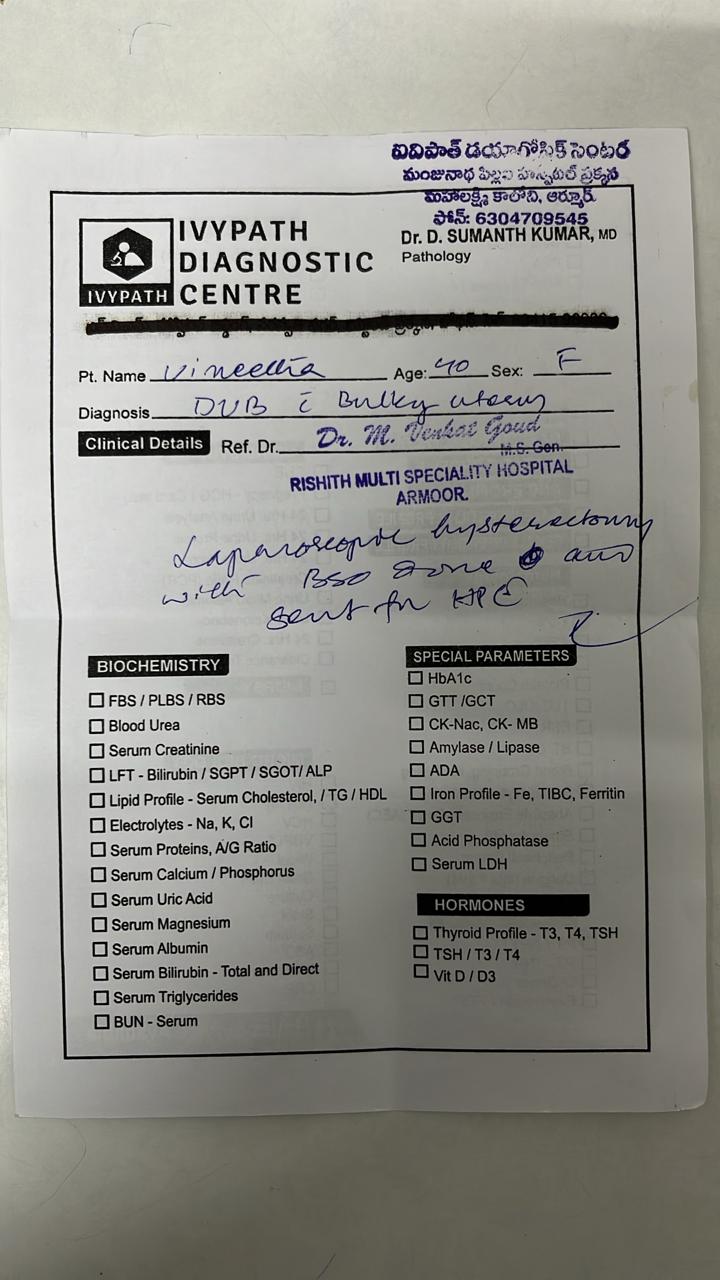 ఐవిపాత్ డయాగ్నోసిక్ సెంటర
మంజునాథ పిల్లల హాస్పిటల్ ప్రక్కన
మహాలక్ష్మి కాలోని, ఆర్మూర్.
ఫోన్: 6304709545
IVYPATH DIAGNOSTIC CENTRE
IVYPATH
Dr. D. SUMANTH KUMAR, MD
Pathology
Pt. Name Vineetha Age: 40 Sex: F
Diagnosis DUB c̄ Bulky uterus
Clinical Details Ref. Dr. Dr. M. Venkat Goud
M.S. Gen.
RISHITH MULTI SPECIALITY HOSPITAL
ARMOOR.
Laparoscopic hysterectomy
with BSO done and
sent for HPE
BIOCHEMISTRY
FBS / PLBS / RBS
Blood Urea
Serum Creatinine
LFT - Bilirubin / SGPT / SGOT/ ALP
Lipid Profile - Serum Cholesterol, / TG / HDL
Electrolytes - Na, K, Cl
Serum Proteins, A/G Ratio
Serum Calcium / Phosphorus
Serum Uric Acid
Serum Magnesium
Serum Albumin
Serum Bilirubin - Total and Direct
Serum Triglycerides
BUN - Serum
SPECIAL PARAMETERS
HbA1c
GTT /GCT
CK-Nac, CK- MB
Amylase / Lipase
ADA
Iron Profile - Fe, TIBC, Ferritin
GGT
Acid Phosphatase
Serum LDH
HORMONES
Thyroid Profile - T3, T4, TSH
TSH / T3 / T4
Vit D / D3